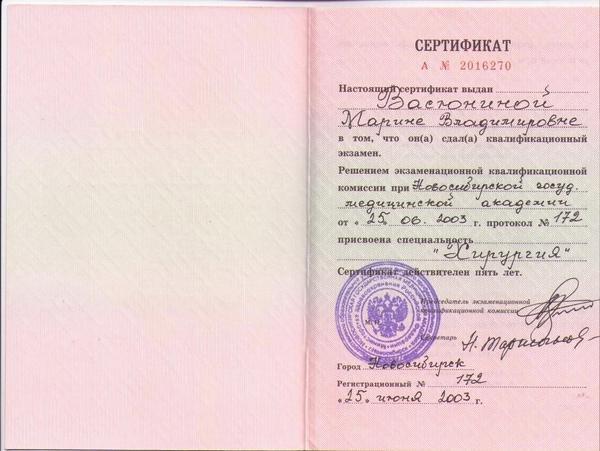 СЕРТИФИКАТ
А № 2016270
Настоящий сертификат выдан
Васюниной
Марине Владимировне
в том, что он(а) сдал(а) квалификационный
экзамен.
Решением экзаменационной квалификационной
комиссии при Новосибирской госуд.
медицинской академии
от « 25 » 06. 2003 г. протокол № 172
присвоена специальность
"Хирургия"
Сертификат действителен пять лет.
Председатель экзаменационной
квалификационной комиссии
Секретарь
Город Новосибирск
Регистрационный № 172
« 25 » июня 2003 г.